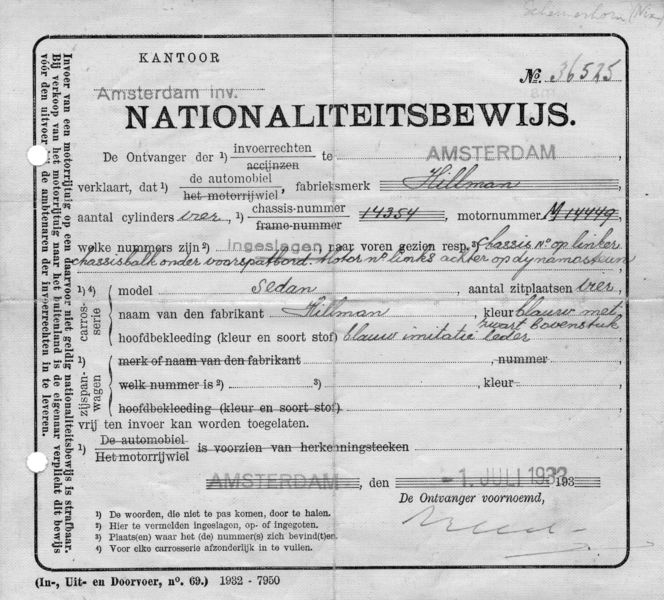 Schermerhorn (Nix)
KANTOOR
Amsterdam inv.
No. 36525
NATIONALITEITSBEWIJS.
De Ontvanger der 1) invoerrechten
accijnzen te AMSTERDAM
verklaart, dat 1) de automobiel
het motorrijwiel, fabrieksmerk Hillman
aantal cylinders vier, 1) chassis-nummer
frame-nummer 14354, motornummer M 14449
welke nummers zijn 2) Ingeslagen naar voren gezien resp. 3) Chassis No op linker
chassisbalk onder voorspatbord. Motor no links achter op dynamosteun
1) 4) carros-
serie
model sedan aantal zitplaatsen vier,
naam van den fabrikant Hillman, kleur blauw met
zwart bovenstuk
hoofdbekleeding (kleur en soort stof) blauw imitatie leder,
1) zijspan-
wagen
merk of naam van den fabrikant nummer
welk nummer is 2) 3) kleur,
hoofdbekleeding (kleur en soort stof),
vrij ten invoer kan worden toegelaten.
1) De automobiel
Het motorrijwiel is voorzien van herkenningsteeken
AMSTERDAM, den -1. JULI 1932 193
De Ontvanger voornoemd,
1) De woorden, die niet te pas komen, door te halen.
2) Hier te vermelden ingeslagen, op- of ingegoten.
3) Plaats(en) waar het (de) nummer(s) zich bevind(t)en.
4) Voor elke carrosserie afzonderlijk in te vullen.
(In-, Uit- en Doorvoer, no. 69.) 1932 - 7950
Invoer van een motorrijtuig op een daarvoor niet geldig nationaliteitsbewijs is strafbaar.
Bij verkoop van het motorrijtuig naar het buitenland is de eigenaar verplicht dit bewijs
vóór den uitvoer de ambtenaren der invoerrechten in te leveren.